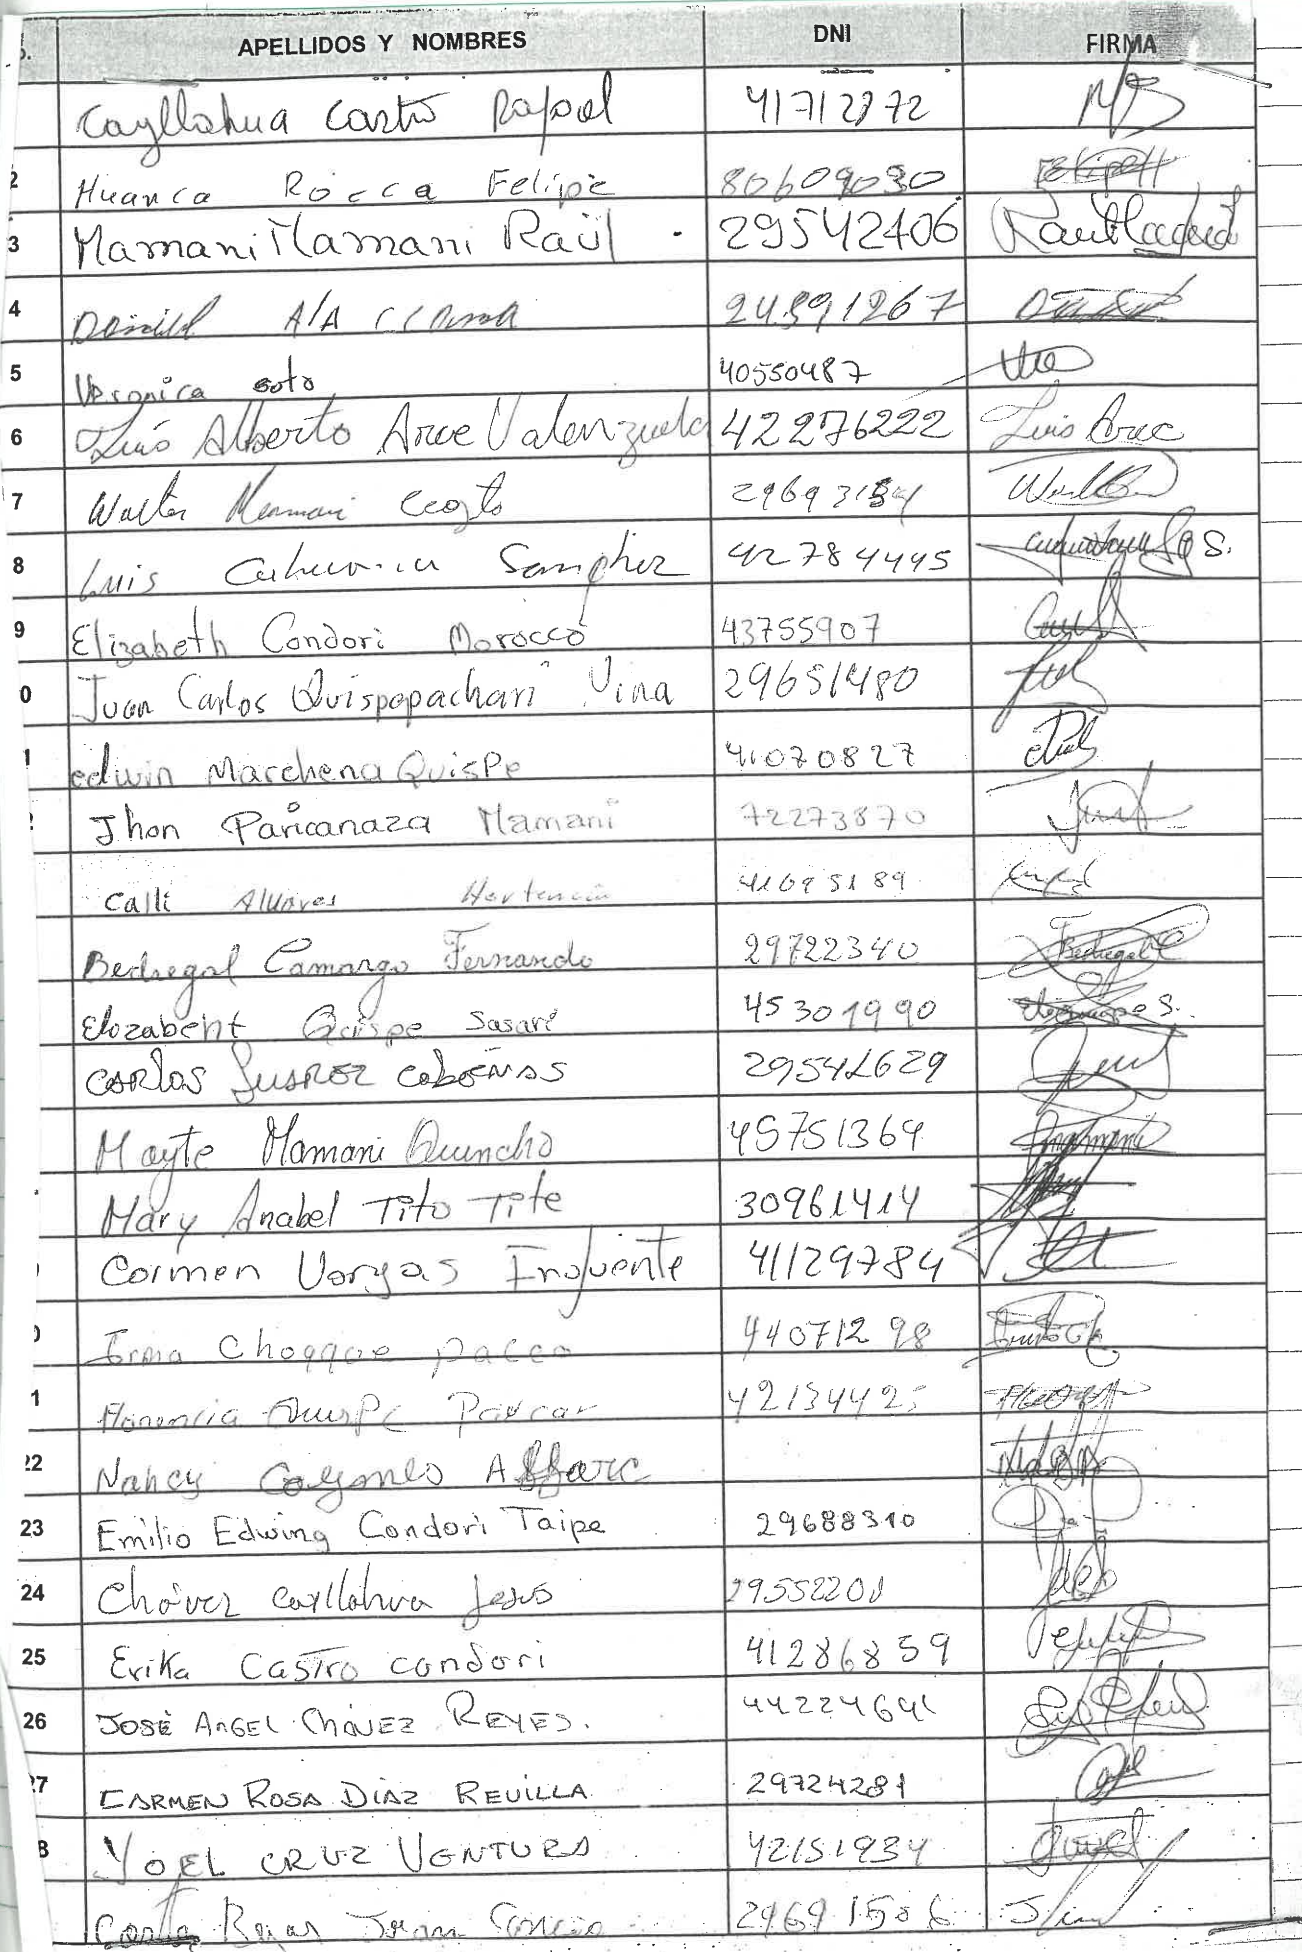 APELLIDOS Y NOMBRES DNI FIRMA
Cayllahua Castro Rafael 41712872
2 Huanca Rocca Felipe 80609030
3 Mamani Mamani Raúl 29542406
4 24391267
5 Veronica soto 40550487
6 Luis Alberto Arce Valenzuela 42276222 Luis Arce
7 Walter Mamani Ccozto
8 Luis Sanchez 42784445
9 Elizabeth Condori Morocco 43755907
0 Juan Carlos Quispepachari Vina 29651480
edwin Marchena Quispe 41070827
Jhon Paricanaza Mamani 72273870
Calli Alvares Hortencia 41695189
Bedregal Camargo Fernando 29722340
Elozabeht Quispe Sasari 45301990
CARlOS SUAREZ CABEÑAS 29541629
Mayte Mamani Quincho 45751364
Mary Anabel Tito Tite 30961414
Carmen Vargas Infuente 41129784
Irma Choqque pacco 44071298
1 Florencia Quispe Paucar
22 Nancy
23 Emilio Edwing Condori Taipe 29688310
24 Chávez Cayllahua Jesus 29552201
25 Erika Castro condori 41286859
26 JOSÉ ANGEL CHÁVEZ REYES. 44224641
27 CARMEN ROSA DÍAZ REVILLA 29724281
8 YOEL CRUZ VENTURA 42151934
Rojas Juan 29691506